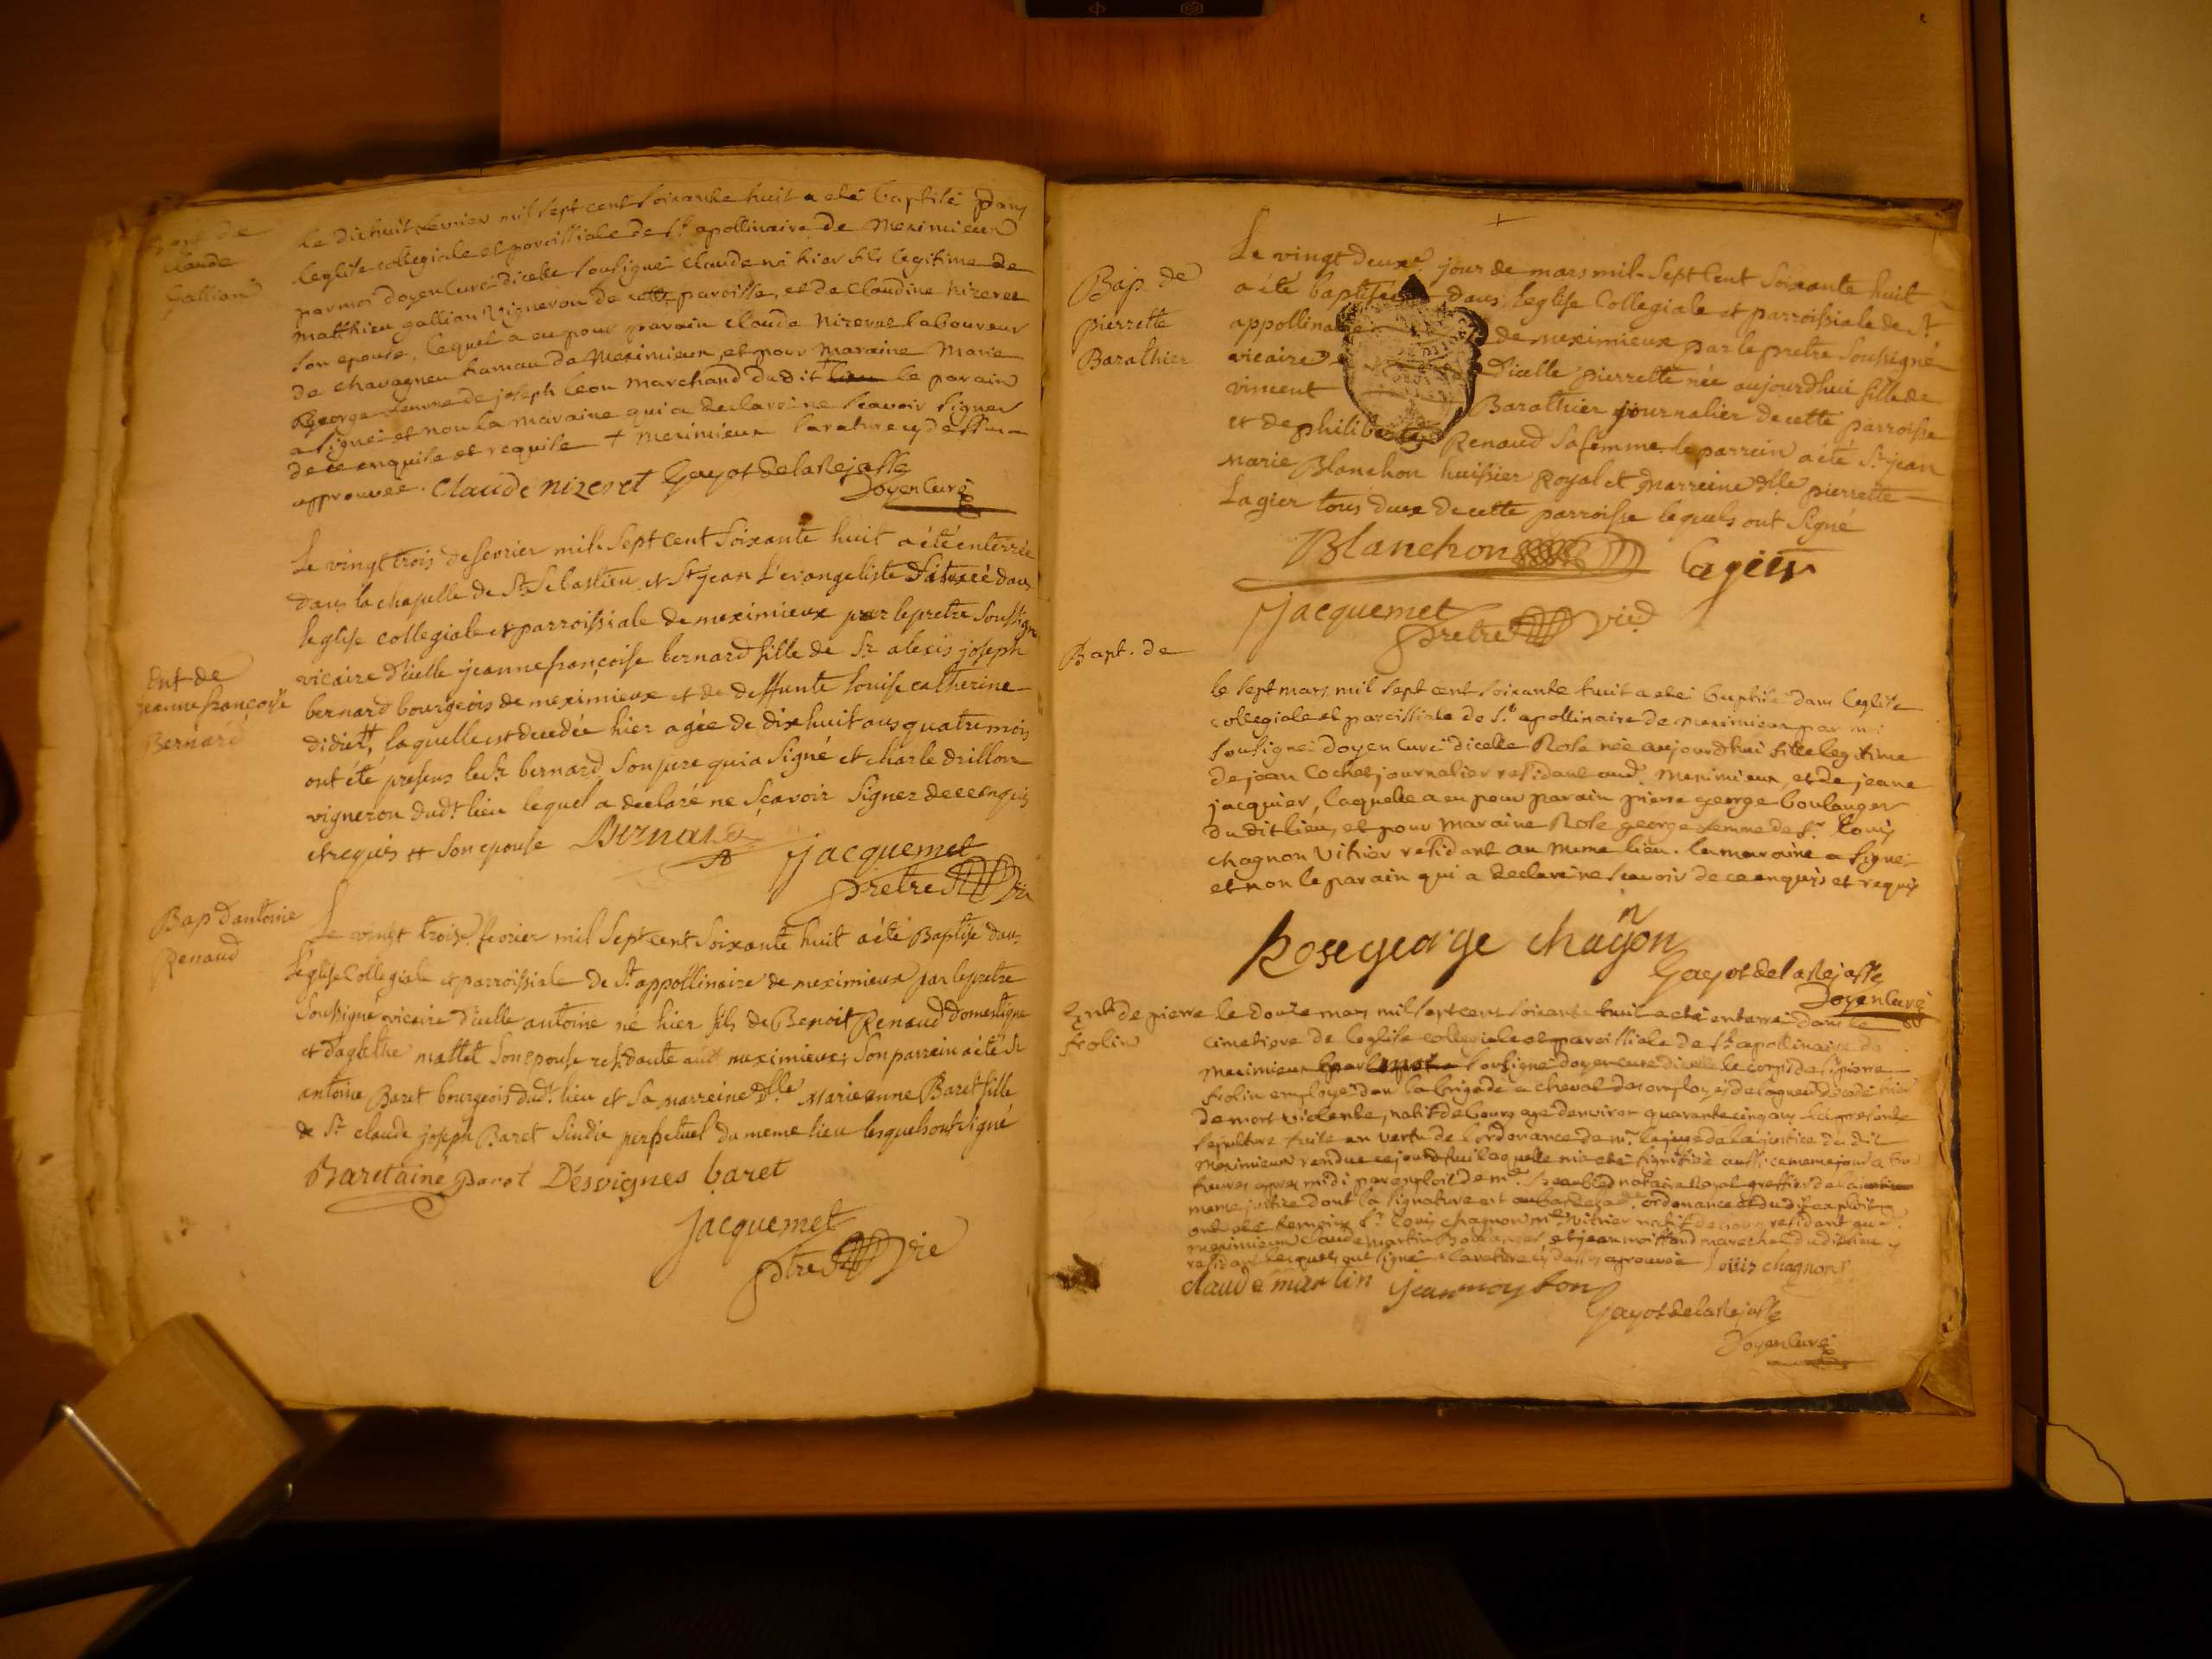 Bapt de
Claude
Gallian
Le dixhuit fevrier mil sept cent soixante huit a eté baptisé dans
leglise collegiale et paroissiale de st apollinaire de Meximieux
par moi doyen curé dicelle soussigné claude né hier fils legitime de
matthieu gallian vigneron de cette paroisse, et de claudine Nizeret
son epouse, lequel a eu pour parain claude Nizeret laboureur
de chavagneu hamau de Meximieux, et pour maraine Marie
George femme de joseph leon marchand dudit + lieu le parain
a signé et non la maraine qui a declaré ne scavoir signer
de ce enquise et requise + meximieux la rature cy dessus
approuvée. claude nizeret Gayot delaRejasse
Doyen Curé
Ent de
jeanne françoise
Bernard
Le vingt trois de fevrier mil sept cent soixante huit a été enterrée
dans la chapelle de St Sebastien et St jean l'evangeliste située dans
leglise collegiale et parroissiale de meximieux par le pretre soussigné
vicaire d'icelle jeanne françoise bernard fille de Sr alexis joseph
bernard bourgeois de meximieux et de deffunte louise catherine
didier ++, laquelle est decedée hier agée de dix huit ans quatre mois
ont été presens le Sr bernard son pere qui a signé et charle drillon
vigneron dudt lieu lequel a declaré ne scavoir signer de ce enquis
et requis ++ son epouse Bernard
jacquemet
pretre
Bap d'antoine
Renaud
Le vingt trois fevrier mil sept cent soixante huit a été Baptisé dans
l'église Collegiale et parroissiale de St appollinaire de meximieux par le pretre
soussigné vicaire d'icelle antoine né hier fils de Benoit Renaud domestique
et d'agathe mattet son epouse residante audt meximieux; son parrein a été Sr
antoine Baret bourgeois dudt lieu et sa marreine dlle Marieanne Baret fille
de Sr claude joseph Baret sindic perpetuel du meme lieu lesquels ont signé
Baret ainé Baret Désvignes baret
jacquemet
ptre vic
Bap de
pierrette
Barathier
Le vingt deuxe jour de mars mil sept cent soixante huit
a été baptisée dans l'eglise Collegiale et parroissiale de St
appollinaire de meximieux par le pretre soussigné
vicaire d'icelle pierrette née aujourdhui fille de
vincent Barathier journalier de cette parroisse
et de philiberte Renaud sa femme. le parrein a été Sr jean
marie Blanchon huissier Royal et marreine dlle pierrette
Lagier tous deux de cette parroisse lequels ont signé
Blanchon Lagier
jacquemet
pretre vic
Bapt. de
le sept mars mil sept cent soixante huit a eté baptisé dans leglise
collegiale et paroissiale de st apollinaire de meximieux par moi
soussigné doyen curé dicelle Rose née aujourdhui fille legitime
de jean Cochet journalier residant audt meximieux, et de jeane
jacquier, laquelle a eu pour parain pierre george boulanger
du dit lieu, et pour maraine Rose george femme de sr louis
chagnon vitrier residant au meme lieu. la maraine a signé
et non le parain qui a declaré ne scavoir de ce enquis et requis
Rose george chagnon
Gayot de laRejasse
Doyen Curé
Ent de pierre
frolin
le douze mars mil sept cent soixante huit a eté enterré dans le
cimetiere de leglise collegiale et paroissiale de st apollinaire de
meximieux par moi soussigné doyen curé dicelle le corps de pierre
frolin employé dans la brigade a cheval des employés de decedé hier
de mort violente, natif de bourg agé denviron quarante cinq ans la presente
sepulture faite en vertu de lordonance de mr le juge de la justice du dit
meximieux rendue ce jourdhui laquelle ma eté signifiée aussi ce meme jour a
heures apres midi par exploit de me notaire Royal greffier de la
meme justice dont la signature est au bas de la dte ordonance et du dit exploit
ont eté temoins sr louis chagnon me vitrier natif de residant au
meximieux claude martin boulanger et jean marechal du dit lieu y
residant lesquels ont signé la rature cy dessus aprouvée louis chagnon
claude martin jean moyson
Gayot de laRejasse
Doyen Curé